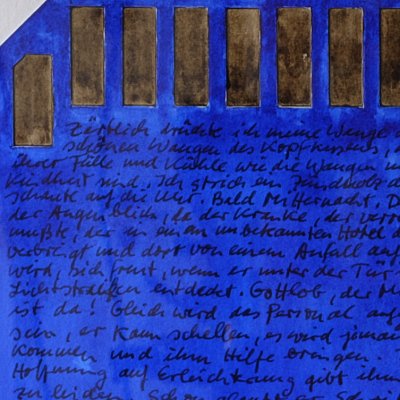 Zärtlich drückte ich meine Wange
schönen Wangen des Kopfkissens,
ihrer Fülle und Kühle wie die Wangen
Kindheit sind. Ich strich ein Zündholz
schaute auf die Uhr. Bald Mitternacht. D
der Augenblick, da der Kranke, der
mußte, der in einem unbekannten Hotel
verbringt und dort von einem Anfall
wird, sich freut, wenn er unter der Tür
Lichtstrahlen entdeckt. Gottlob, der
ist da! Gleich wird das Personal
scho, er kann schellen, es wird
kommen und ihm Hilfe bringen.
Hoffnung auf Erleichterung gibt ihm
zu leiden.